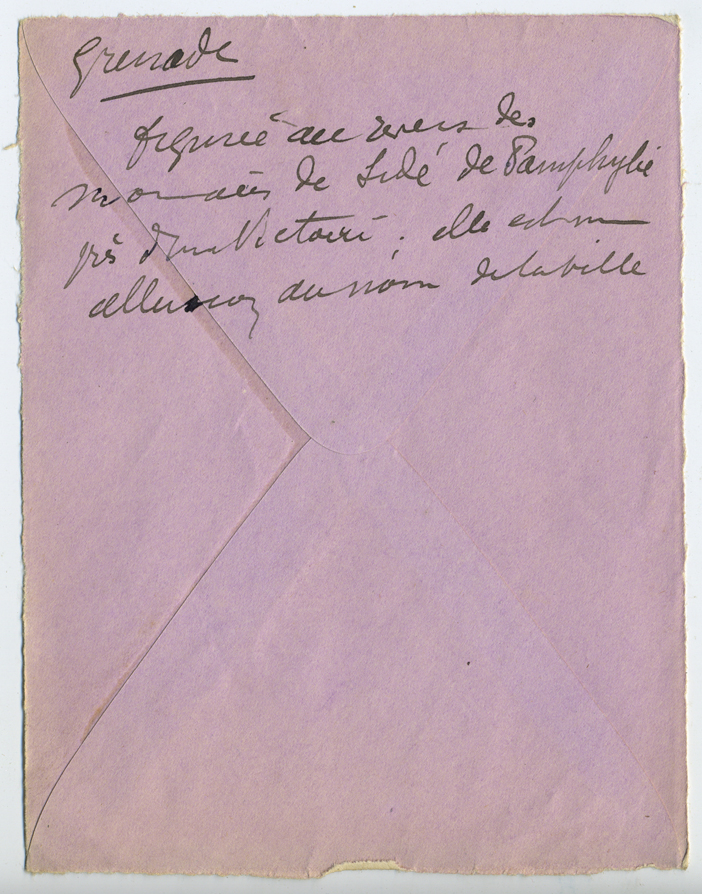 Grenade
figurée au revers des
monnaies de Sidé de Pamphylie
près d'une Victoire. elle est une
allusion au nom de la ville